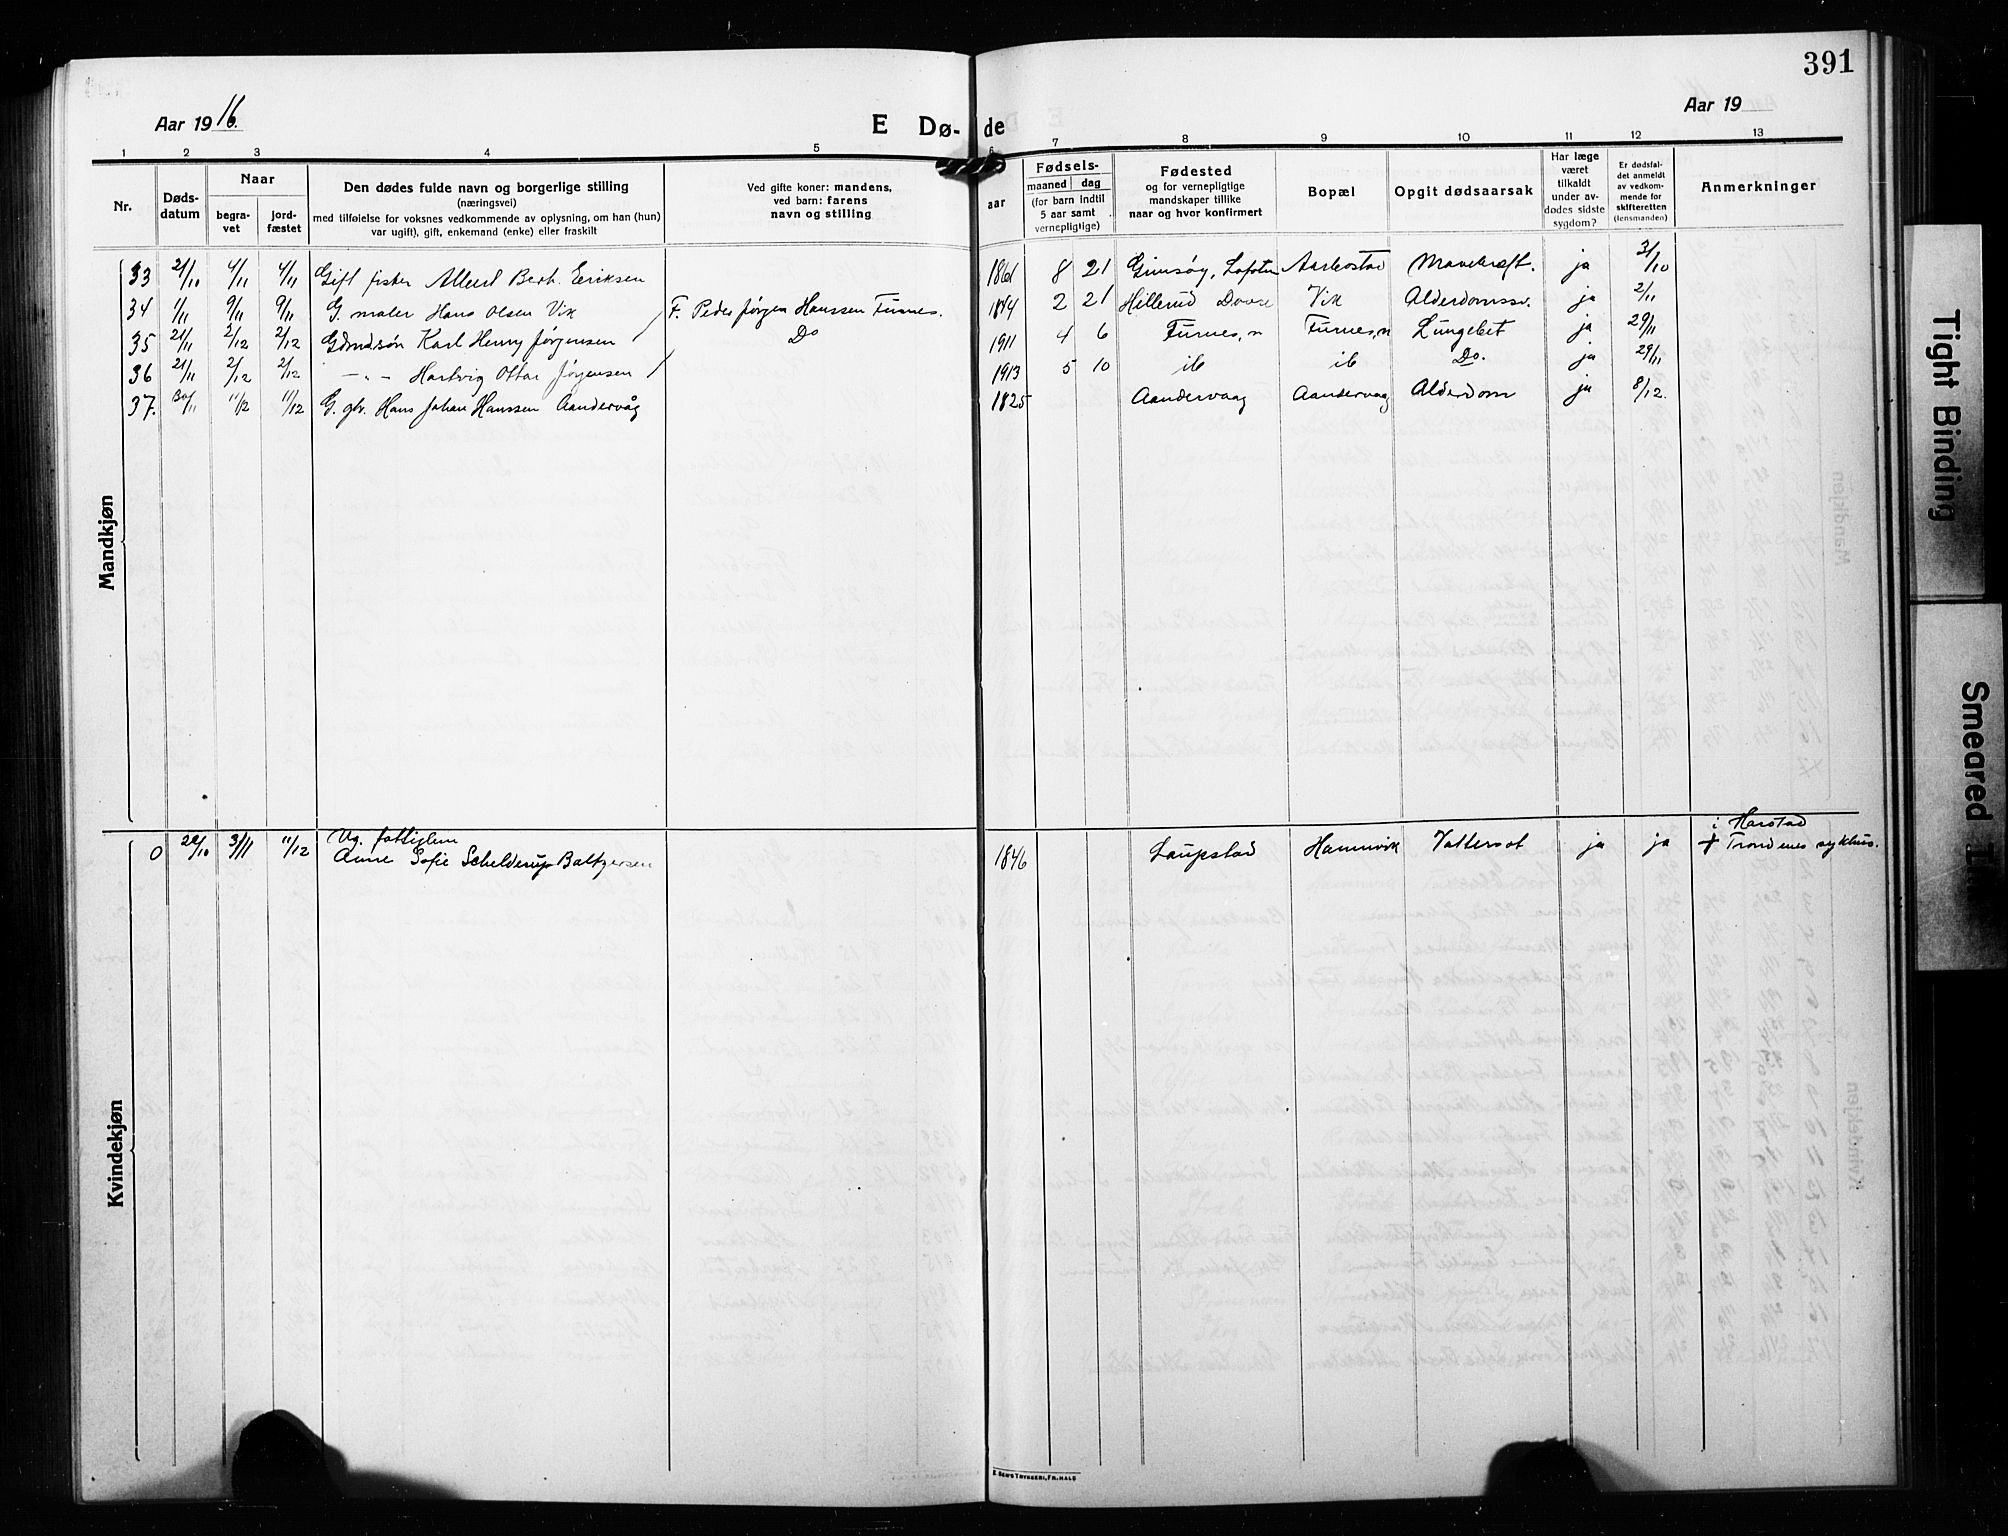 391
Aar 1916.
E Dø- de
Aar 19
1 2 3 4 5 6 7 8 9 10 11 12 13
Nr.
Døds-
datum
Naar
begra-
vet
jord-
fæstet
Den dødes fulde navn og borgerlige stilling
(næringsvei)
med tilføielse for voksnes vedkommende av oplysning, om han (hun)
var ugift), gift, enkemand (enke) eller fraskilt
Ved gifte koner: mandens,
ved barn: farens
navn og stilling
Fødsels-
aar
maaned dag
(for barn indtil
5 aar samt
vernepligtige)
Fødested
og for vernepligtige
mandskaper tillike
naar og hvor konfirmert
Bopæl
Opgit dødsaarsak
Har læge
været
tilkaldt
under av-
dødes sidste
sygdom?
Er dødsfal-
det anmeldt
av vedkom-
mende for
skifteretten
(lensmanden)
Anmerkninger
Mandkjøn
33 21/10 4/11 4/11 Gift fisker Albert Berh. Eriksen 1861 8 21 Gimsøy, Lofoten Mavekræft. ja 31/10
34 1/11 9/11 9/11 G. maler Hans Olsen Vik 1844 2 21 Hillerud Vik Alderdomssv. ja 2/11
F. Peder Jørgen Hanssen Furnes.
35 21/11 2/12 2/12 Karl Henry Jørgensen Do 1911 4 6 Furnes, n Furnes, n Lungebet ja 29/11
36 21/11 2/12 2/12 — " — Hartvig Ottar Jørgensen 1913 5 10 ib ib Do. ja 29/11
37. 30/11 11/12 11/12 G. gbr. Hans Johan Hanssen Aandervåg 1825 Aandervaag Aandervaag Alderdom ja 8/12.
Kvindekjøn
Ug. fattiglem
i Harstad
0 3/11 11/12 Anne Sofie Schelderup Baltzersen 1846 Laupstad Hamnvik Vattersot ja ja † Trondenes sykhus.
E. SEM'S TRYKKERI, FR.HALD
Tight Binding
Smeared